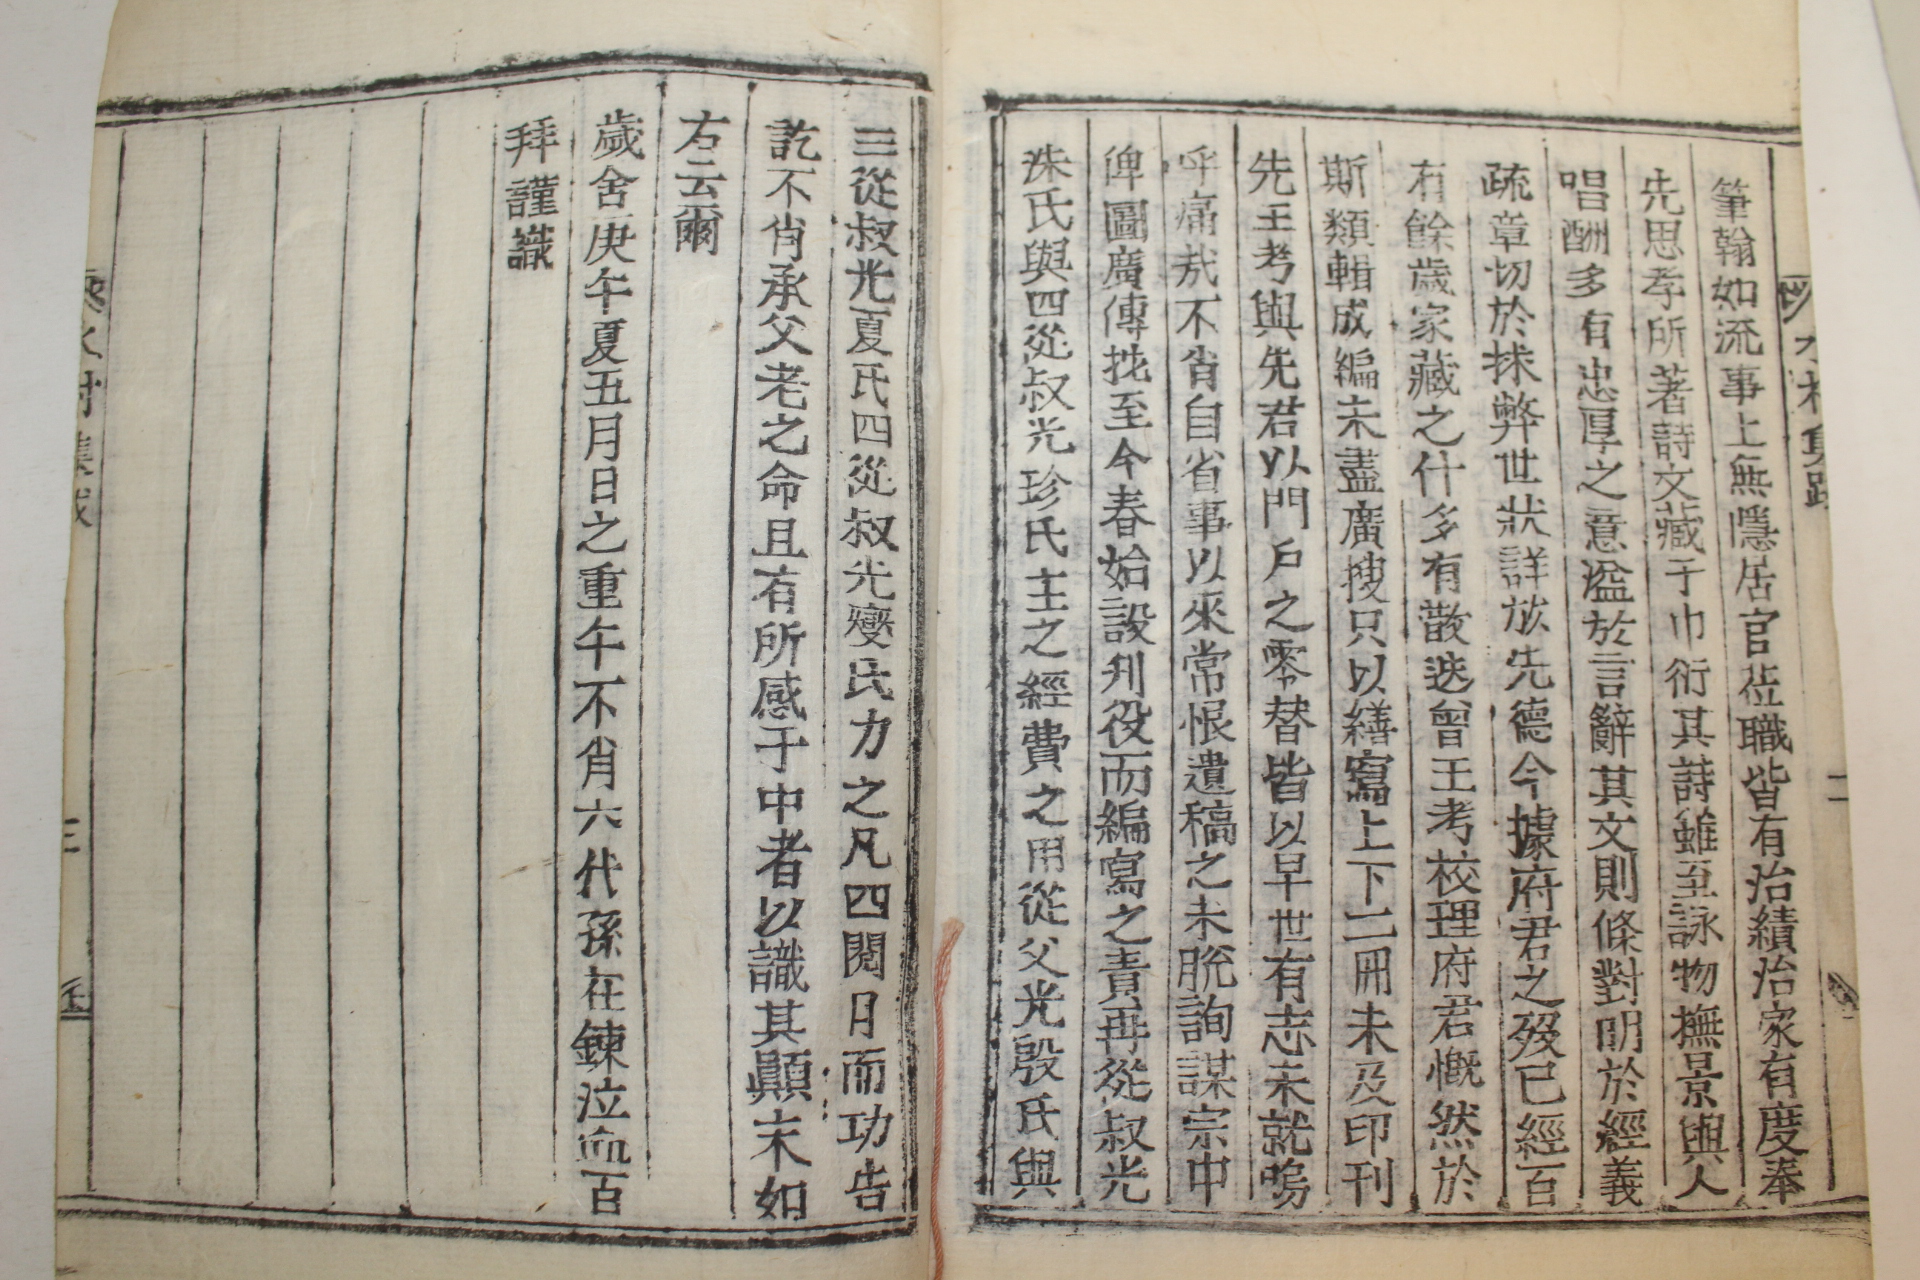 筆翰如流事上無隱居官莅職皆有治績治家有度奉
先思孝所著詩文藏于巾衍其詩雖至詠物撫景與人
唱酬多有忠厚之意溢於言辭其文則條對明於經義
疏章切於捄弊世狀詳於先德今據府君之歿已經百
有餘歲家藏之什多有散迭曾王考校理府君慨然於
斯類輯成編未盡廣搜只以繕寫上下二冊未及印刊
先王考與先君以門戶之零替皆以早世有志未就嗚
呼痛哉不肖自省事以來常恨遺稿之未脫詢謀宗中
俾圖廣傳拖至今春始設刋役而編寫之責再從叔光
洙氏與四從叔光珍氏主之經費之用從父光殷氏與
三從叔光夏氏四從叔光燮氏力之凡四閱日而功告
訖不肖承父老之命且有所感于中者以識其顚末如
右云爾
歲舍庚午夏五月日之重午不肖六代孫在鍊泣血百
拜謹識
二
三